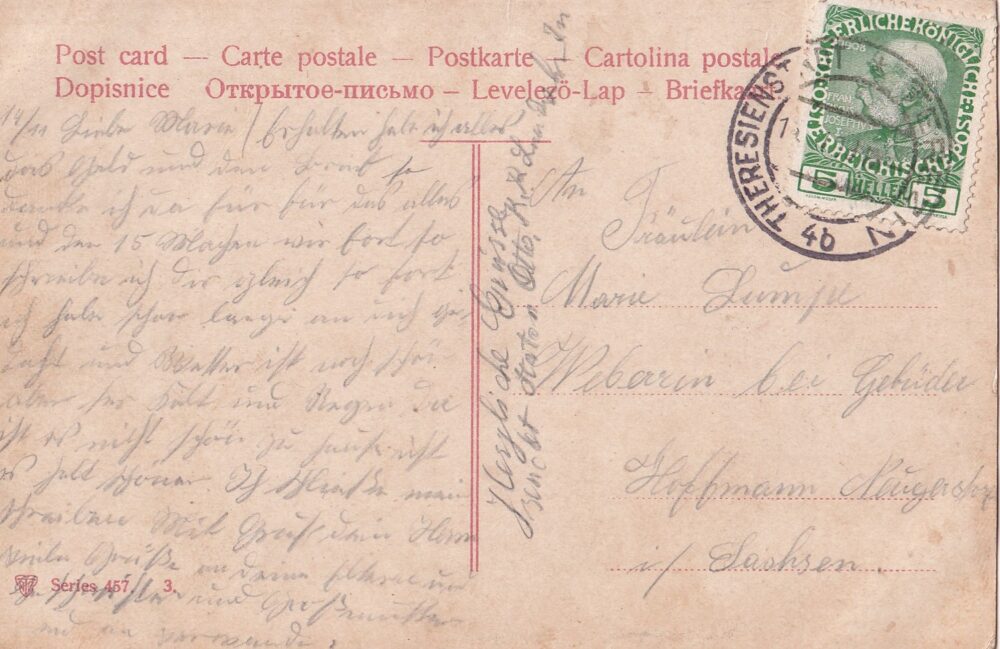 Post card — Carte postale — Postkarte — Cartolina postale
Dopisnice Открытое-письмо – Levelező-Lap – Briefkaart
KAISERLICHE KÖNIGLICHE
ÖSTERREICHISCHE POST
1908
FRANZ
JOSEF I
5 HELLER 5
THERESIENSTADT
4b
14/11 Liebe Marie / Erhalten habe ich alles
das Geld und den Brief so
danke ich da für das alles
und den 15 wir fort so
schreibe ich dir gleich so fort
ich habe schon lange an dich ge-
dacht und Wetter ist noch schön
aber Kalt und Regen da
ist es nicht schön zu hause ist
es halt schöner Ich schließe mein
schreiben Mit Gruß dein
viele Grüße an deine Eltern und
und Großmutter
und an verwande
Herzliche Grüsse
sendet Anton
An
Fräulein
Marie Lumpe
Weberin bei Gebüder
Hoffmann Neugersdorf
i/ Sachsen.
Series 457. 3.